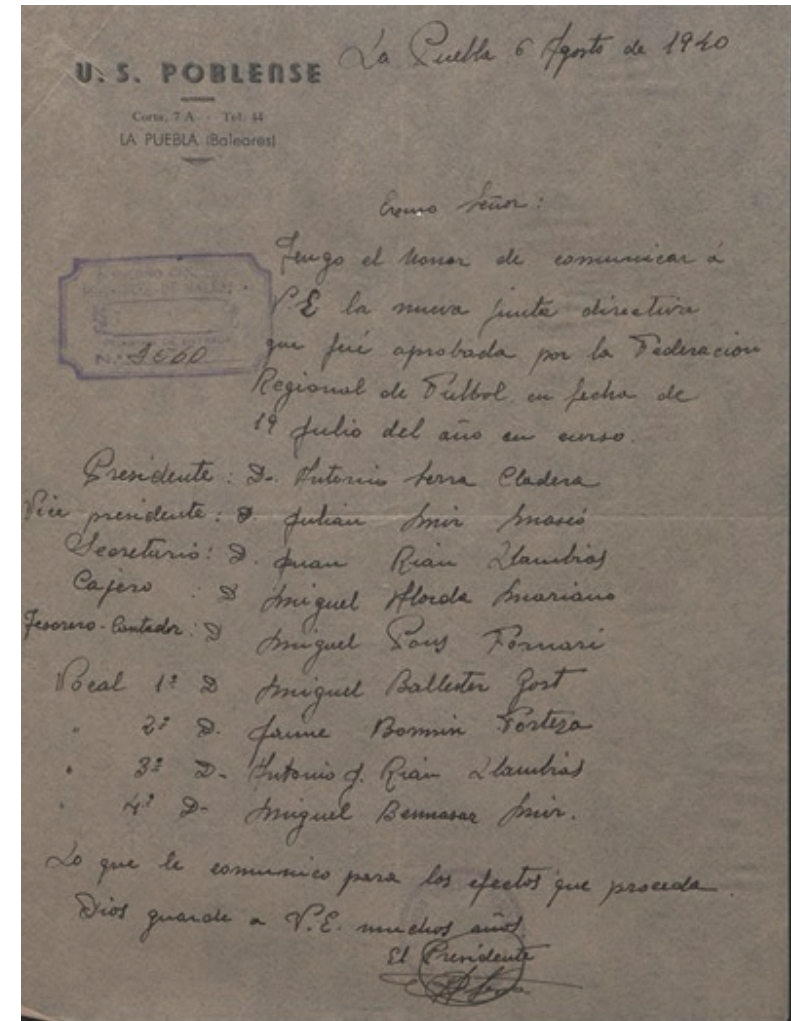 La Puebla 6 Agosto de 1940
U. S. POBLENSE
Corta, 7 A - Tel. 44
LA PUEBLA (Baleares)
Excmo Señor:
Tengo el honor de comunicar á
V.E la nueva junta directiva
que fué aprobada por la Federacion
Regional de Futbol en fecha de
19 Julio del año en curso.
N.º 9560
Presidente: D. Antonio Serra Cladera
Vice presidente: D. Julian Mir
Secretario: D. Juan Llambias
Cajero : D Miguel Mariano
Tesorero-Contador: D Miguel Pons Fornari
Vocal 1º D Miguel Ballester Gost
" 2º D. Jaume Bonnin Forteza
" 3º D. Antonio J. Llambias
" 4º D. Miguel Bennasar Mir.
Lo que le comunico para los efectos que proceda.
Dios guarde a V.E. muchos años.
El Presidente